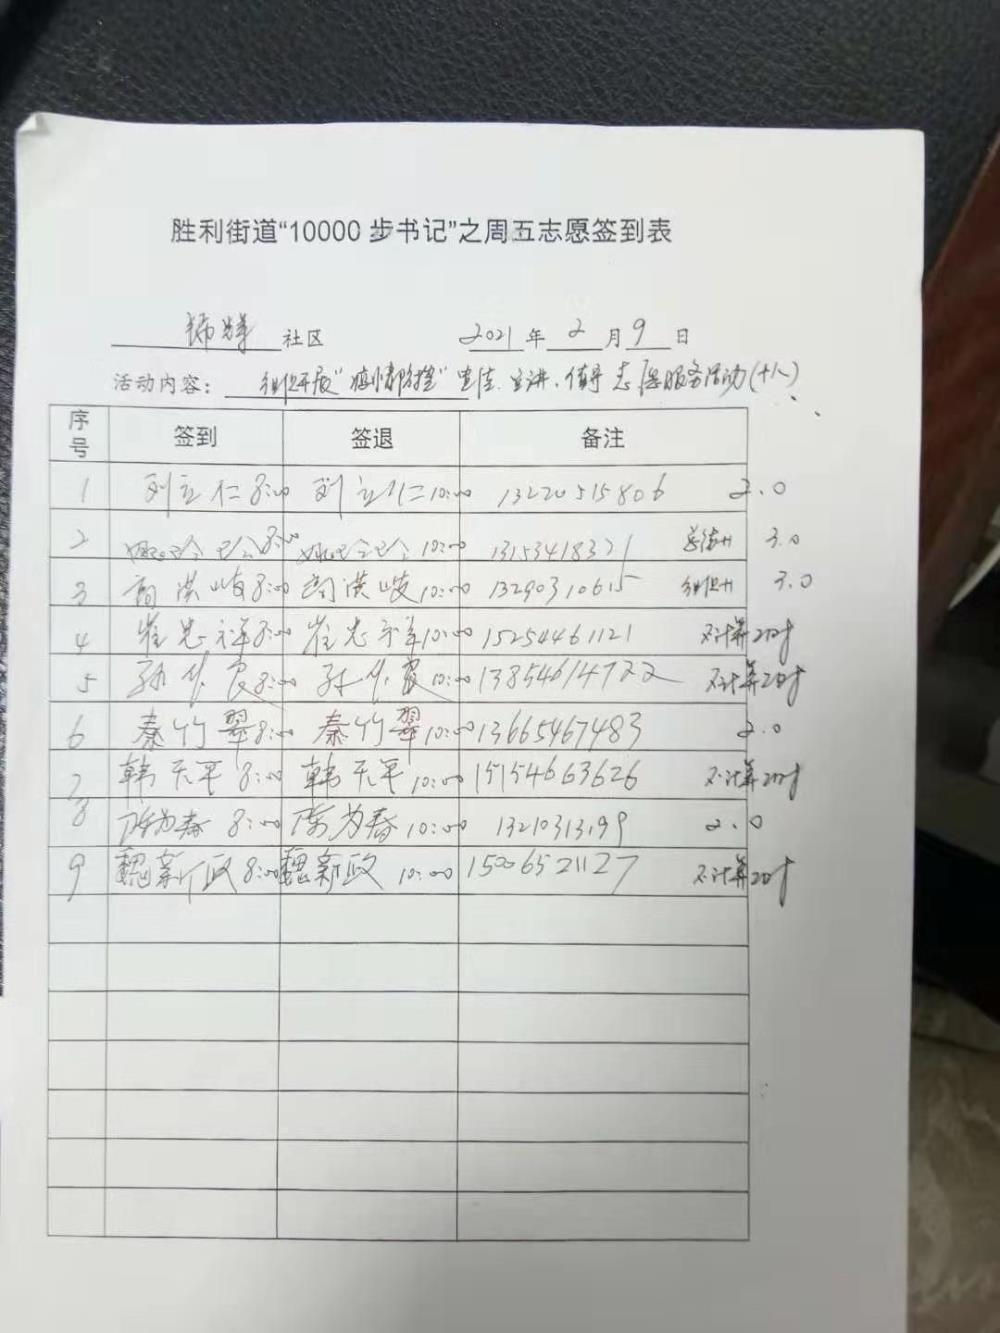 胜利街道“10000 步书记”之周五志愿签到表
锦华 社区 2021 年 2 月 9 日
活动内容: 组织开展"疫情防控"宣传、宣讲、值守志愿服务活动(十八)
序号 签到 签退 备注
1 刘立仁 8:00 刘立仁 10:00 13220515806 2.0
2 8:00 10:00 13153418321 3.0
3 高洪岐 8:00 高洪岐 10:00 13290310615 组织者 3.0
4 崔忠祥 8:00 崔忠祥 10:00 15254461121 不计算2小时
5 孙作良 8:00 孙作良 10:00 13854614722 不计算2小时
6 秦竹翠 8:00 秦竹翠 10:00 13665467483 2.0
7 韩天平 8:00 韩天平 10:00 15154663626 不计算2小时
8 陈为春 8:00 陈为春 10:00 13210313199 2.0
9 魏新政 8:00 魏新政 10:00 15006521127 不计算2小时